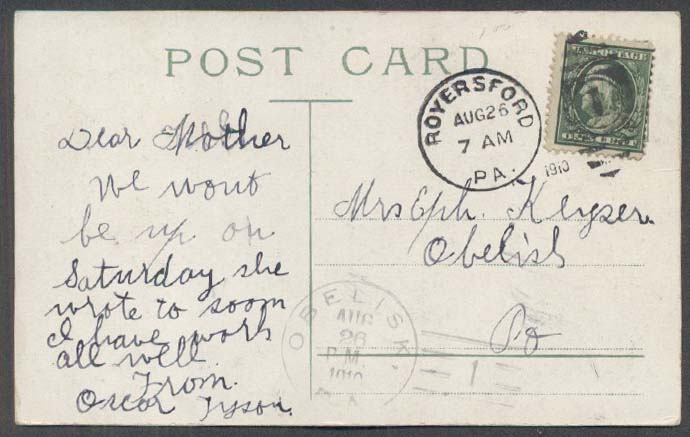 POST CARD
ROYERSFORD
AUG 26
7 AM
1910
PA.
Dear Mother
We wont
be up on
Saturday she
wrote to soom
I have work
all well.
From.
Oscar Tyson.
Mrs Eph. Keyser.
Obelish
Pa
OBELISK.
AUG
26
P.M.
1910
PA
1